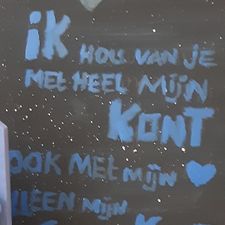 iK HOU VAN JE
MET HEEL MIJN
KONT
OOK MET MIJN
LLEEN MIJN
K